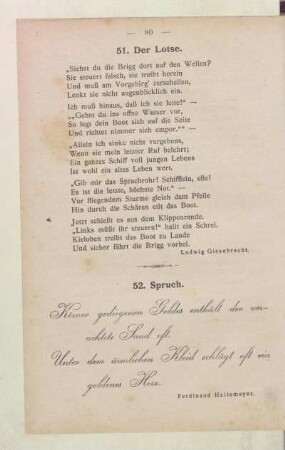 — 80 —
51. Der Lotse.
„Siehst du die Brigg dort auf den Wellen?
Sie steuert falsch, sie treibt herein
Und muß am Vorgebirg' zerschellen,
Lenkt sie nicht augenblicklich ein.
Ich muß hinaus, daß ich sie leite!“ —
„„Gehst du ins offne Wasser vor,
So legt dein Boot sich auf die Seite
Und richtet nimmer sich empor.““ —
„Allein ich sinke nicht vergebens,
Wenn sie mein letzter Ruf belehrt;
Ein ganzes Schiff voll jungen Lebens
Ist wohl ein altes Leben wert.
„Gib mir das Sprachrohr! Schifflein, eile!
Es ist die letzte, höchste Not.“ —
Vor fliegendem Sturme gleich dem Pfeile
Hin durch die Schären eilt das Boot.
Jetzt schießt es aus dem Klippenrande.
„Links müßt ihr steuern!“ hallt ein Schrei.
Kieloben treibt das Boot zu Lande
Und sicher fährt die Brigg vorbei.
Ludwig Giesebrecht.
52. Spruch.
Körner gediegenen Goldes enthält der ver-
achtete Sand oft.
Unter dem ärmlichen Kleid schlägt oft ein
goldenes Herz.
Ferdinand Heitemeyer.